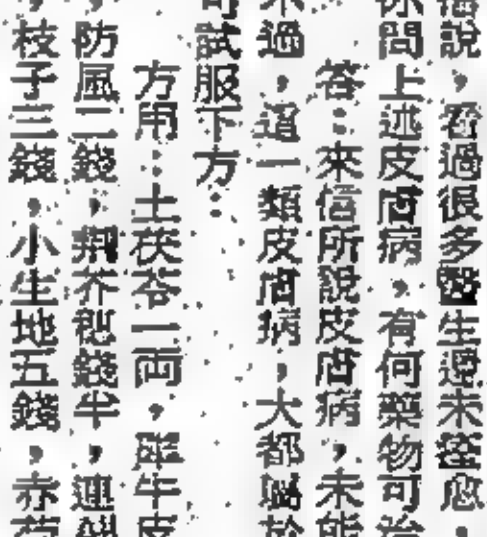 說，看過很多醫生還未痊愈，
你問上述皮膚病，有何藥物可治
答：來信所說皮膚病，未能
不過，這一類皮膚病，大都屬於
可試服下方：
方用：土茯苓一両，犀牛皮
，防風二錢，荆芥穗錢半，連翹
，枝子三錢，小生地五錢，赤芍